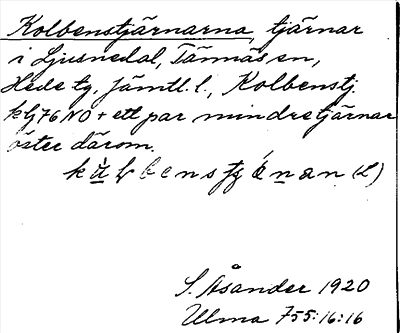 Kolbenstjärnarna, tjärnar
i Ljusnedal, Tännäs sn,
Hede tg. Jämtl. l., Kolbenstj.
klj 76 NO + ett par mindre tjärnar
öster därom.
(L)
S. Åsander 1920
Ulma 755:16:16